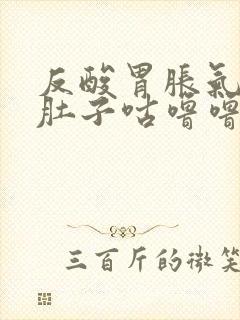 反酸胃胀氣
肚子咕噜噜
三百斤的微笑